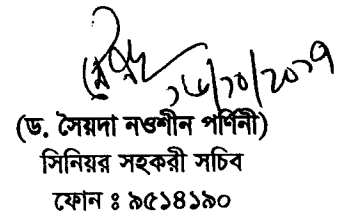 ১৬/১০/২০১৭
(ড. সৈয়দা নওশীন পর্ণিনী)
সিনিয়র সহকরী সচিব
ফোন ঃ ৯৫১৪১৯০